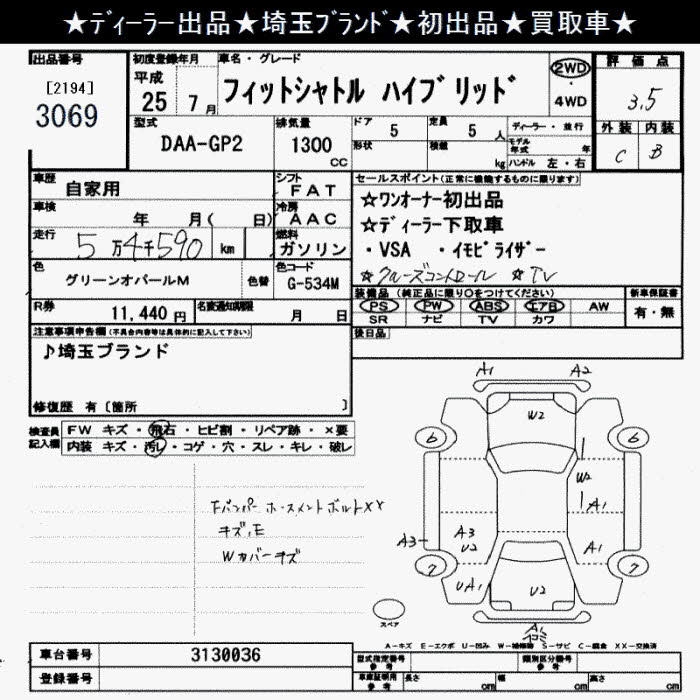 ★ディーラー出品★埼玉ブランド★初出品★買取車★
出品番号
[2194]
3069
初度登録年月
平成
25 7月
車名・グレード
フィットシャトル ハイブリッド
2WD
・
4WD
評価点
3.5
外装 内装
C B
型式
DAA-GP2
排気量
1300
CC
ドア 5
定員 5 人
形状
積載 kg
ディーラー・並行
モデル年式 年
ハンドル 左・右
車歴
自家用
シフト
FAT
車検
年 月( 日)
冷房
AAC
走行
5万4千590 km
燃料
ガソリン
色
グリーンオパールM
色替
色コード
G-534M
R券
11,440 円
名変通知期限
月 日
セールスポイント(正常に機能するものに限ります)
☆ワンオーナー初出品
☆ディーラー下取車
・VSA ・イモビライザー
☆クルーズコントロール ☆TV
装備品 (純正品に限り○をつけてください)
PS PW ABS エアB AW
SR ナビ TV カワ
新車保証書
有・無
後日品
注意事項申告欄(不具合内容等は具体的に記入して下さい)
♪埼玉ブランド
修復歴 有[箇所 ]
検査員
記入欄
FW キズ・飛石・ヒビ割・リペア跡・×要
内装 キズ・汚レ・コゲ・穴・スレ・キレ・破レ
Fバンパー ホースメントボルトXX
キズ,E
Wカバーキズ
A1 A2
W2
6 6
W2
A1
A3
A3
U2
A1
7 7
UA1
U2
A1
スペア
A-キズ E-エクボ U-凹み W-補修跡 S-サビ C-腐食 XX-交換済
車台番号
3130036
登録番号
型式指定番号
参考
類別区分番号
参考
車庫証明用
参考
長さ cm
幅 cm
高さ cm